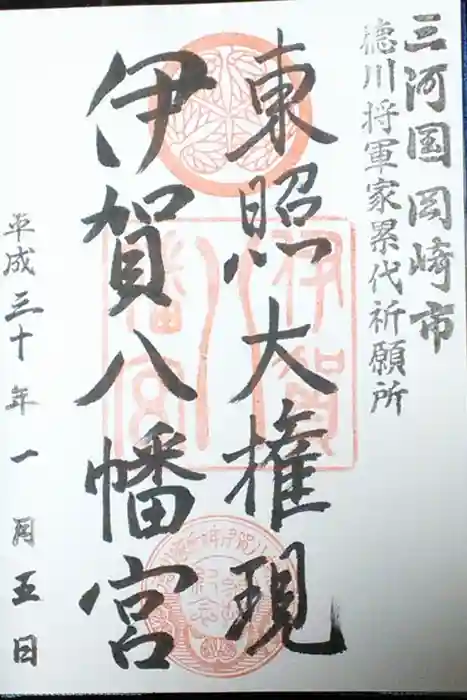 三河国岡崎市
徳川将軍家累代祈願所
東照大権現
伊賀八幡宮
平成三十年一月五日
伊賀八幡宮